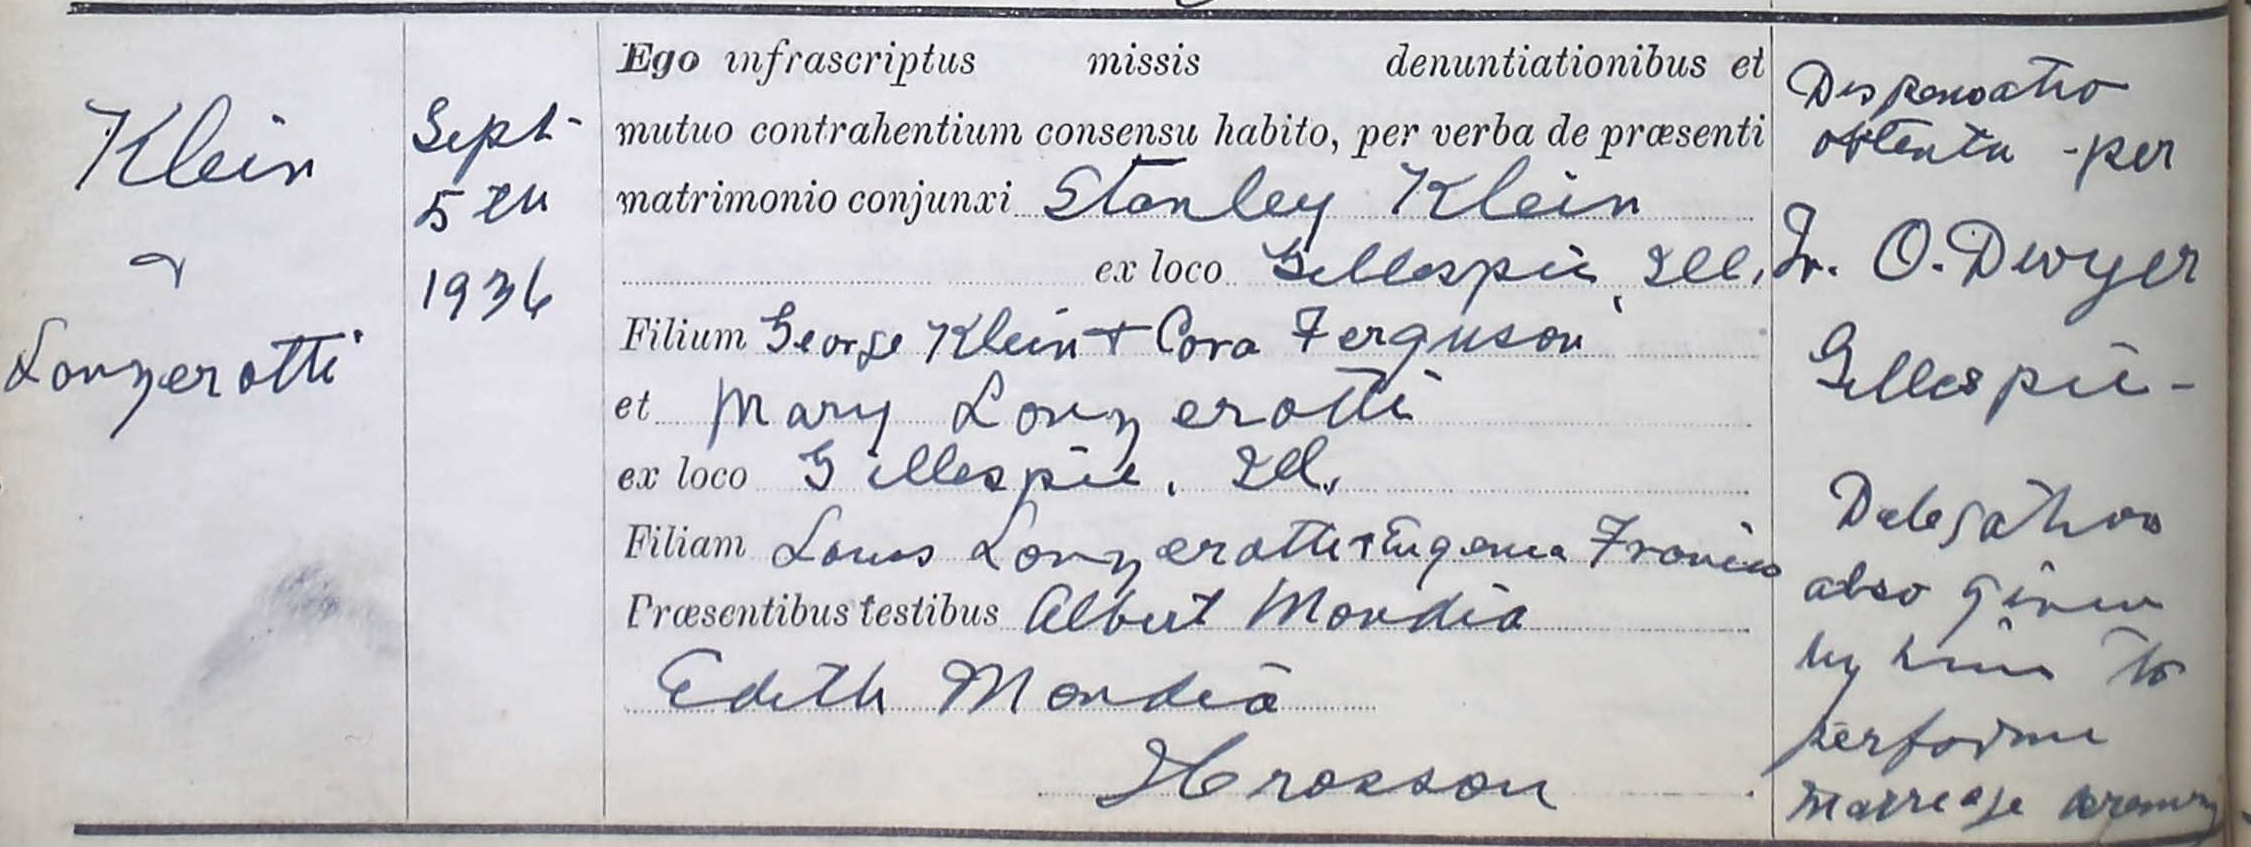 Klein
&
Lonzerotti
Sept-
5th
1936
Ego infrascriptus missis denuntiationibus et
mutuo contrahentium consensu habito, per verba de præsenti
matrimonio conjunxi Stanley Klein
ex loco Gillespie, Ill.
Filium George Klein + Cora Ferguson
et Mary Lonzerotti
ex loco Gillespie, Ill.
Filiam Louis Lonzerotti + Eugenia
Præsentibus testibus Albert Mondia
Edith Mondia
Dispensatio
obtenta - per
Fr. O. Dwyer
Gillespie -
Delegation
also given
by him to
perform
marriage ceremony